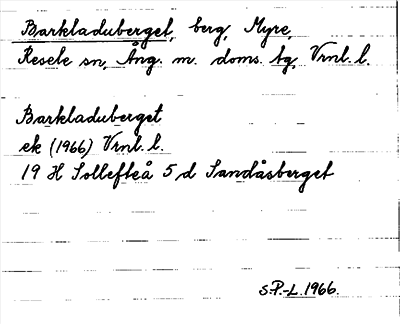 Barkladuberget, berg, Myre,
Resele sn, Ång. m. doms. tg, Vrnl. l.
Barkladuberget
ek (1966) Vrnl. l.
19 H Sollefteå 5 d Sandåsberget
S.P.-L. 1966.